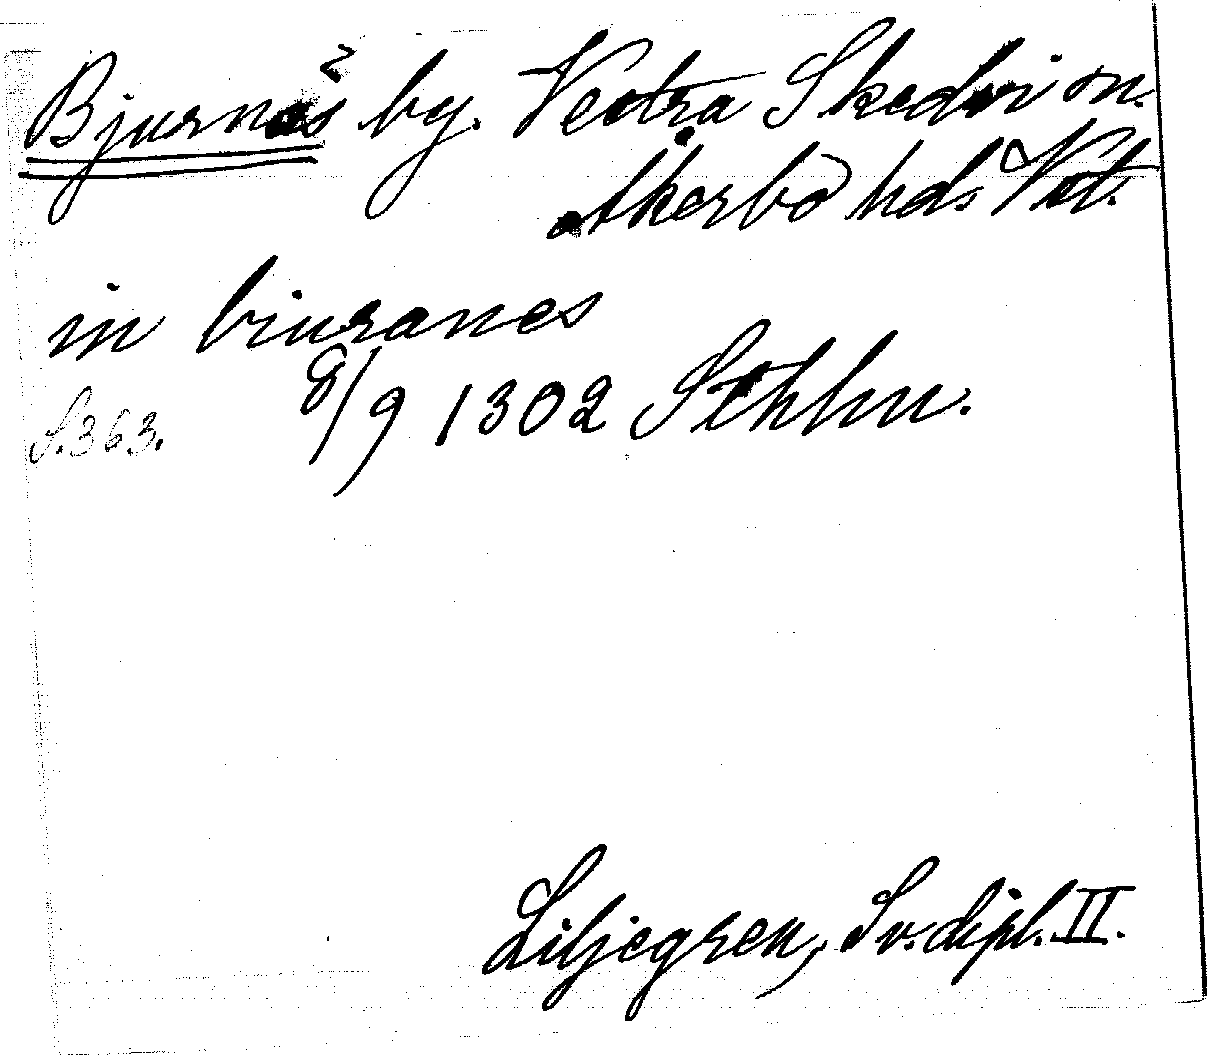 Bjurnäs by. Vestra Skedvi sn.
Åkerbo hd. Vstl.
in biuranes
S. 363. 8/9 1302 Sthlm.
Liljegren, Sv. dipl. II.